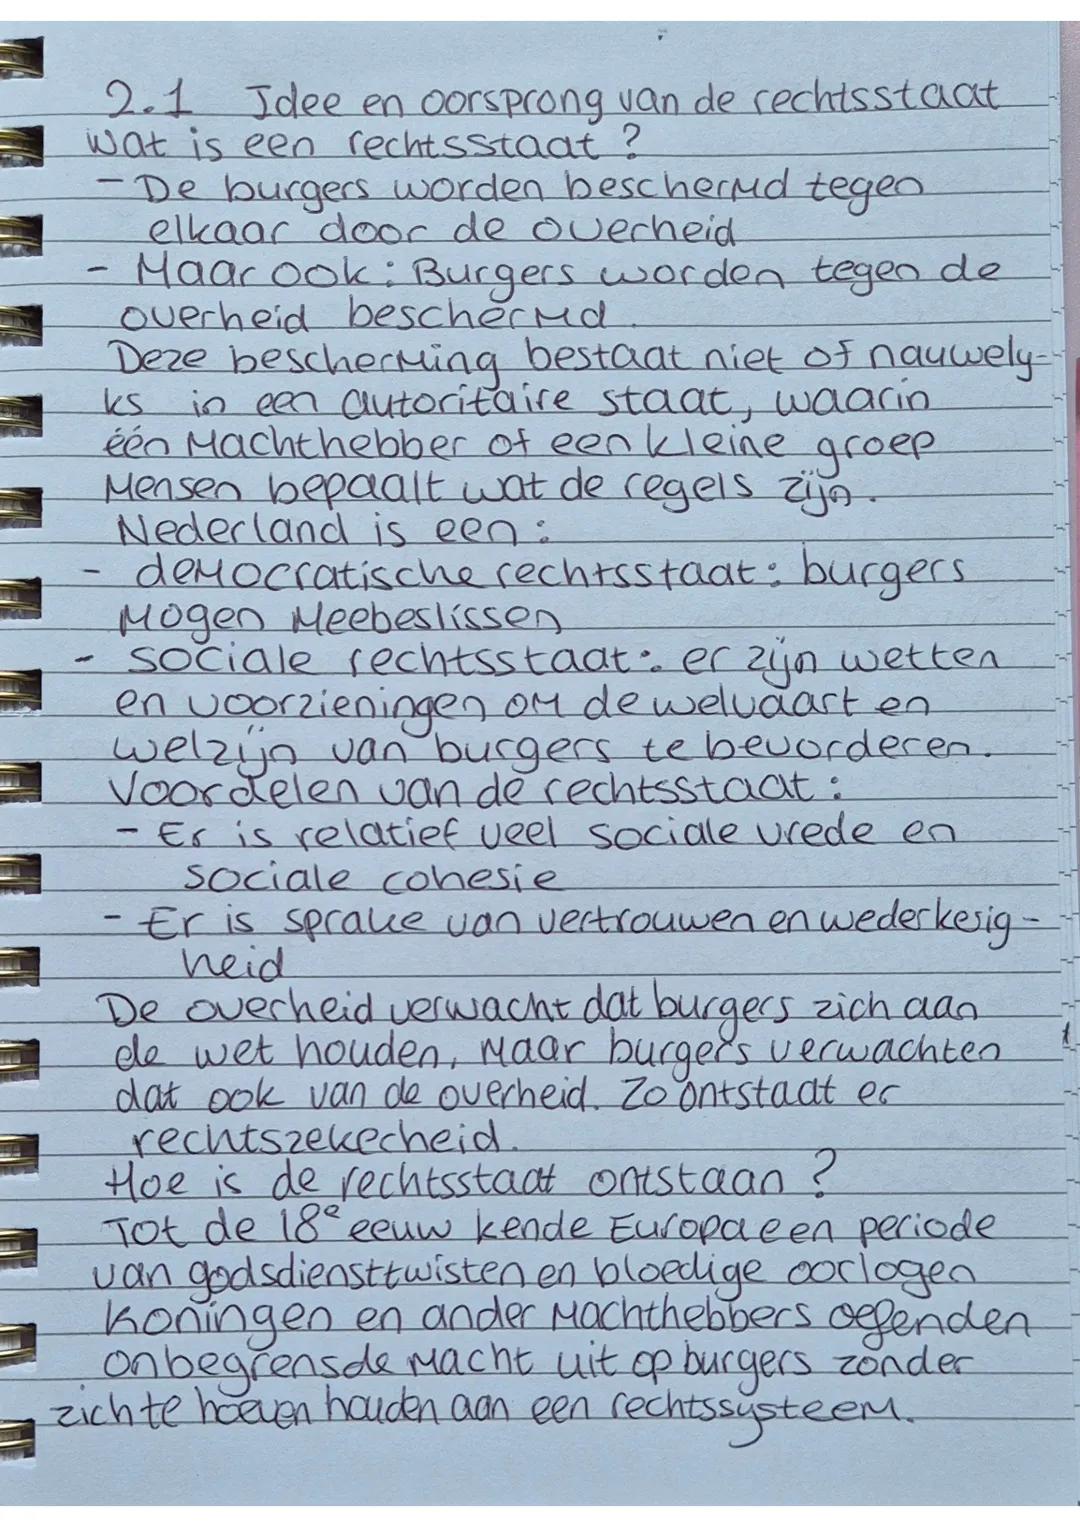 2.1 Idee en oorsprong van de rechtsstaat
Wat is een rechtsstaat?
- De burgers worden beschermd tegen
elkaar door de overheid
- Maar ook: Burgers worden tegen de
overheid beschermd.
Deze bescherming bestaat niet of nauwely-
ks in een autoritaire staat, waarin
één Machthebber of een kleine groep
Mensen bepaalt wat de regels zijn.
Nederland is een:
- democratische rechtsstaat: burgers
Mogen Meebeslissen
- sociale rechtsstaat: er zijn wetten
en voorzieningen om de welvaart en
welzijn van burgers te bevorderen.
Voordelen van de rechtsstaat:
- Er is relatief veel sociale vrede en
sociale cohesie
- Er is sprake van vertrouwen en wederkerig-
heid
De overheid verwacht dat burgers zich aan
de wet houden, maar burgers verwachten
dat ook van de overheid. Zo ontstaat er
rechtszekerheid.
Hoe is de rechtsstaat ontstaan?
Tot de 18e eeuw kende Europa een periode
van godsdiensttwisten en bloedige oorlogen
Koningen en ander Machthebbers oefenden
onbegrensde macht uit op burgers zonder
zich te hoeven houden aan een rechtssysteem.